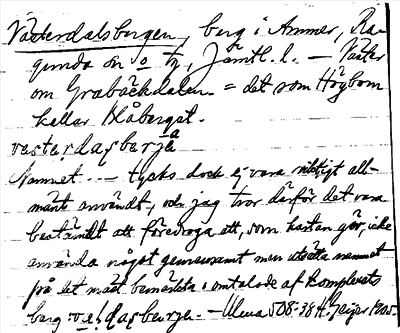 Västerdalsbergen, berg i Ammer, Ra-
gunda sn o. tg, Jämtl. l. — Väster
om Grabäckdalen. = det som Högbom
kallar Blåberget.
västerdasbergja
Namnet - - - tycks dock ej vara riktigt all-
mänt användt, och jag tror därför det vara
bestämdt att föredraga att, som kartan gör, icke
använda något gemensamt men utsätta namnet
på det mest bemärkta i omtalade af komplexets
berg v.a.dasbergje. — Ulena 508:38 H. Geijer 1905.